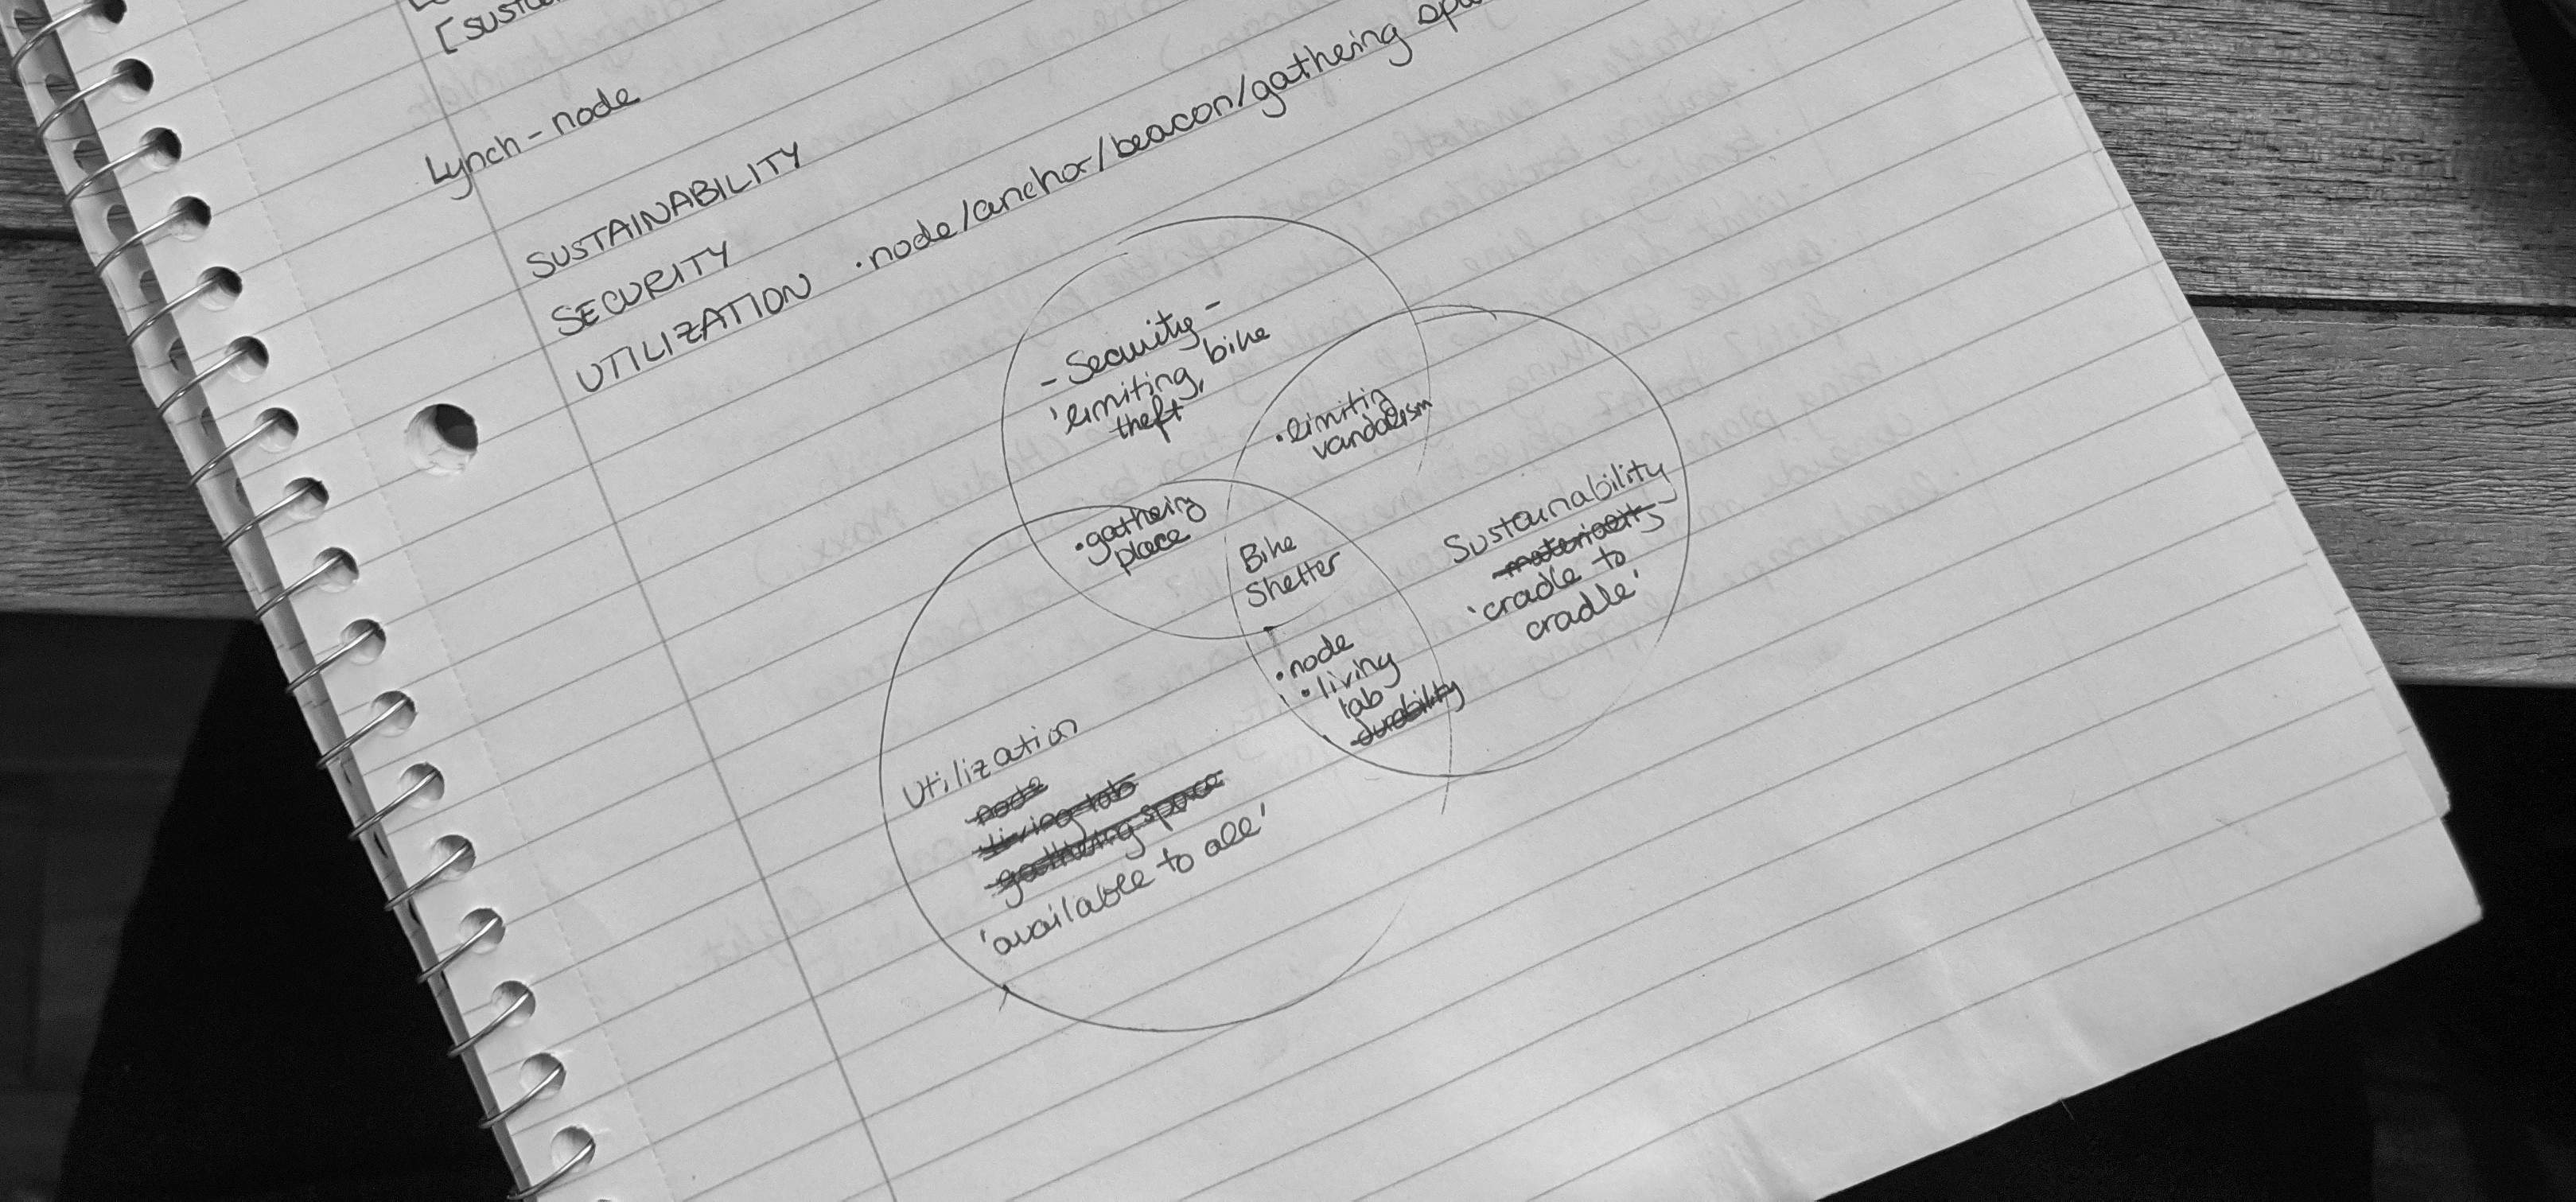 [susta
Lynch - node
SUSTAINABILITY
SECURITY
UTILIZATION · node/anchor/beacon/gathering spa
- Security -
'limiting bike
theft'
· limiting
vandalism
· gathering
place
Bike
Shelter
Sustainability
materiality
'cradle to
cradle'
· node
· living
lab
durability
Utilization
node
living lab
gathering space
'available to all'